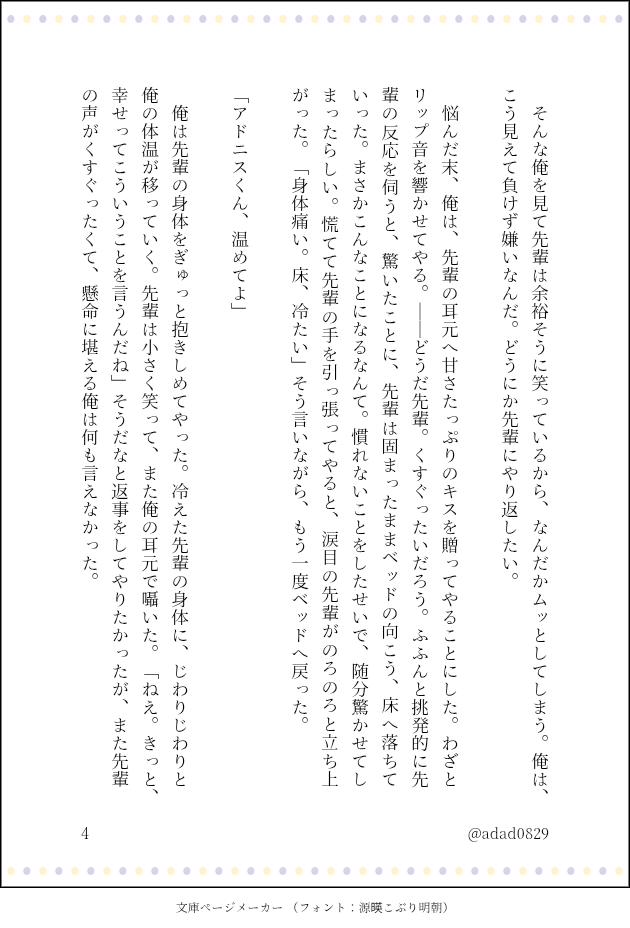 そんな俺を見て先輩は余裕そうに笑っているから、なんだかムッとしてしまう。俺は、
こう見えて負けず嫌いなんだ。どうにか先輩にやり返したい。
悩んだ末、俺は、先輩の耳元へ甘さたっぷりのキスを贈ってやることにした。わざと
リップ音を響かせてやる。――どうだ先輩。くすぐったいだろう。ふふんと挑発的に先
輩の反応を伺うと、驚いたことに、先輩は固まったままベッドの向こう、床へ落ちて
いった。まさかこんなことになるなんて。慣れないことをしたせいで、随分驚かせてし
まったらしい。慌てて先輩の手を引っ張ってやると、涙目の先輩がのろのろと立ち上
がった。「身体痛い。床、冷たい」そう言いながら、もう一度ベッドへ戻った。
「アドニスくん、温めてよ」
俺は先輩の身体をぎゅっと抱きしめてやった。冷えた先輩の身体に、じわりじわりと
俺の体温が移っていく。先輩は小さく笑って、また俺の耳元で囁いた。「ねえ。きっと、
幸せってこういうことを言うんだね」そうだなと返事をしてやりたかったが、また先輩
の声がくすぐったくて、懸命に堪える俺は何も言えなかった。
4
@adad0829
文庫ページメーカー （フォント：源暎こぶり明朝）